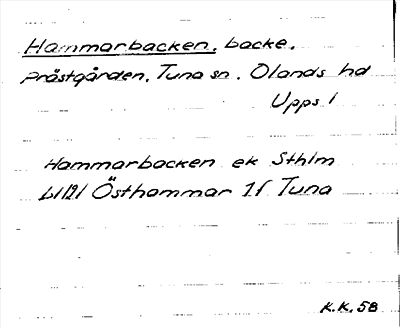 Hammarbacken, backe,
Prästgården, Tuna sn. Olands hd
Upps l
Hammarbacken ek Sthlm
Östhammar 1f Tuna
K.K. 58